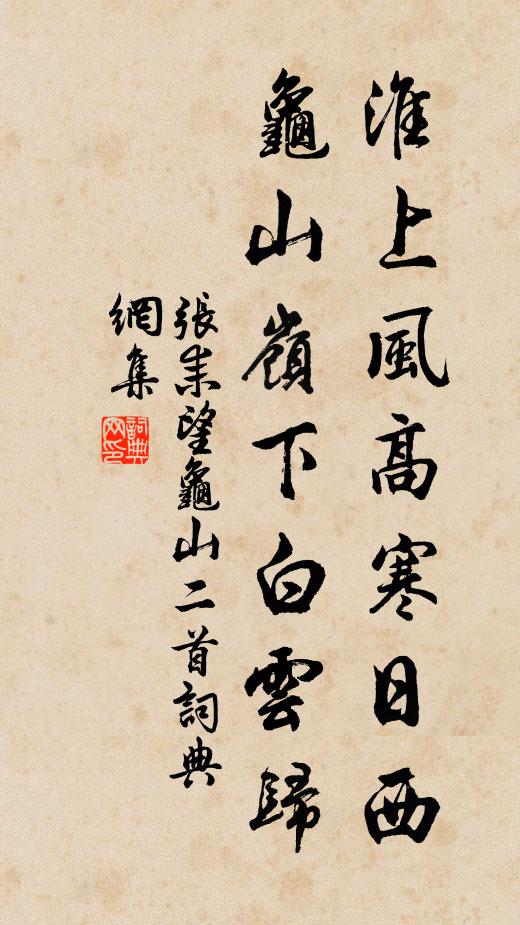 淮上風高寒日西
龜山嶺下白雲歸
張耒望龜山二首詞典
網集
詞典
网印